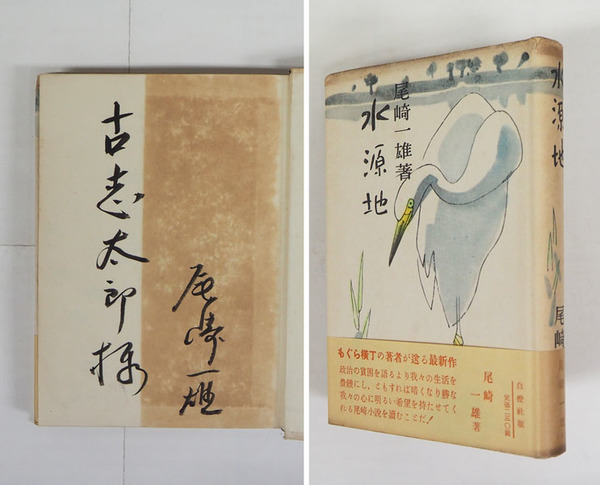 古志太郎様
尾崎一雄
尾崎一雄著
水源地
水源地
尾崎
もぐら横丁の著者が送る最新作
政治の貧困を語るより我々の生活を
豊饒にし、ともすれば暗くなり勝な
我々の心に明るい希望を持たせてく
れる尾崎小説を読むことだ!
尾崎一雄著
白燈社版